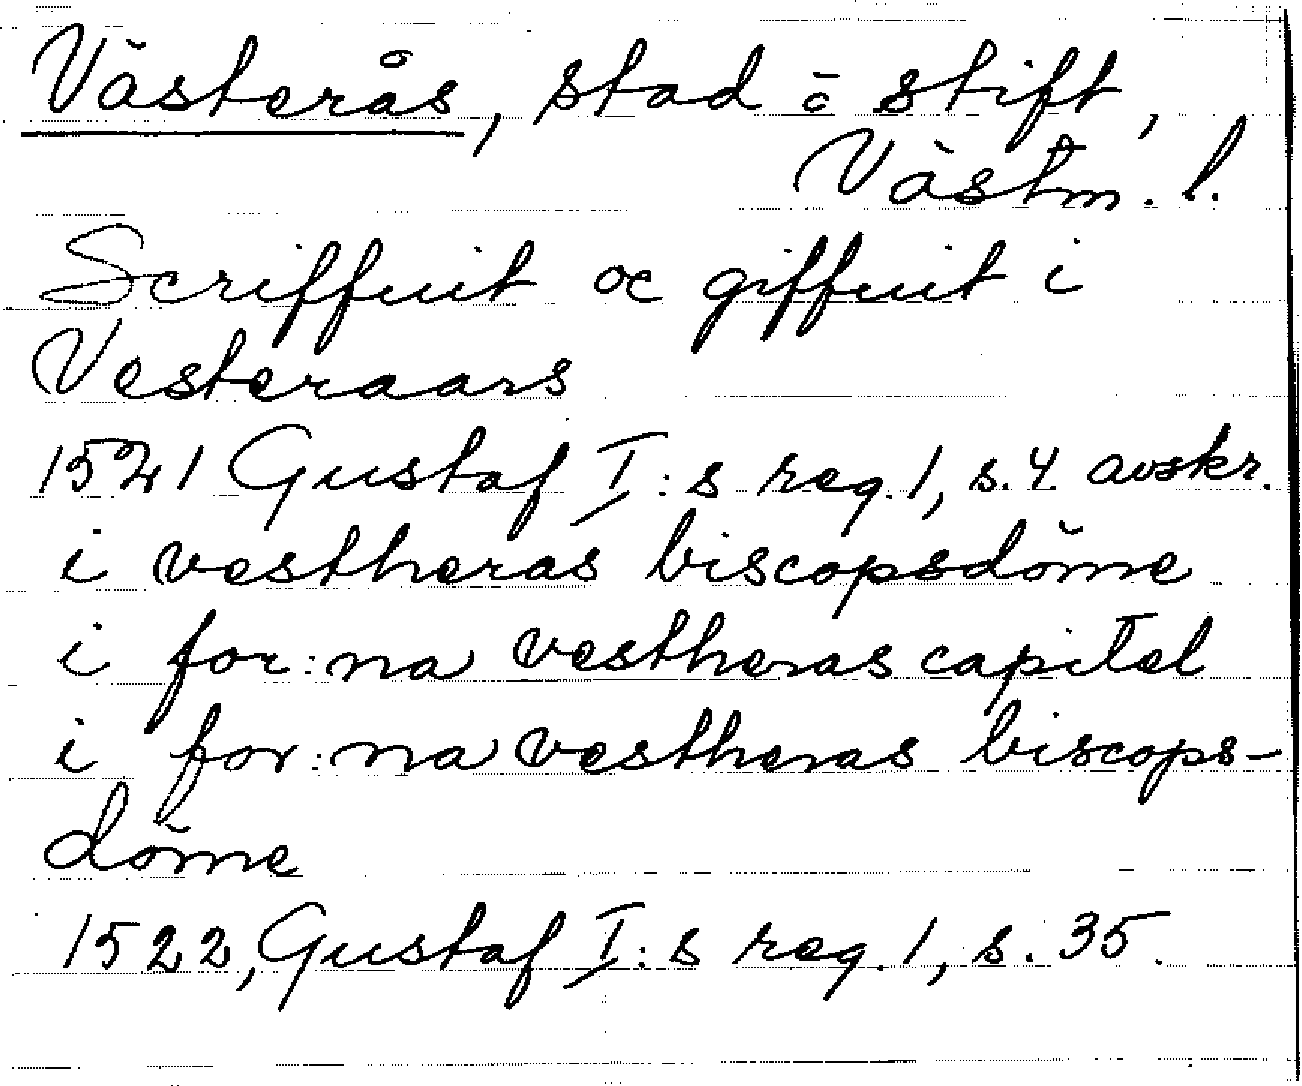 Västerås, stad o stift,
Västm. l.
Scriffuit oc giffuit i
Vesteraars
1521 Gustaf I:s reg. 1, s. 4 avskr.
i vestheras biscopsdöme
i for:na vestheras capitel
i for:na vestheras biscops-
döme
1522, Gustaf I:s reg. 1, s. 35.